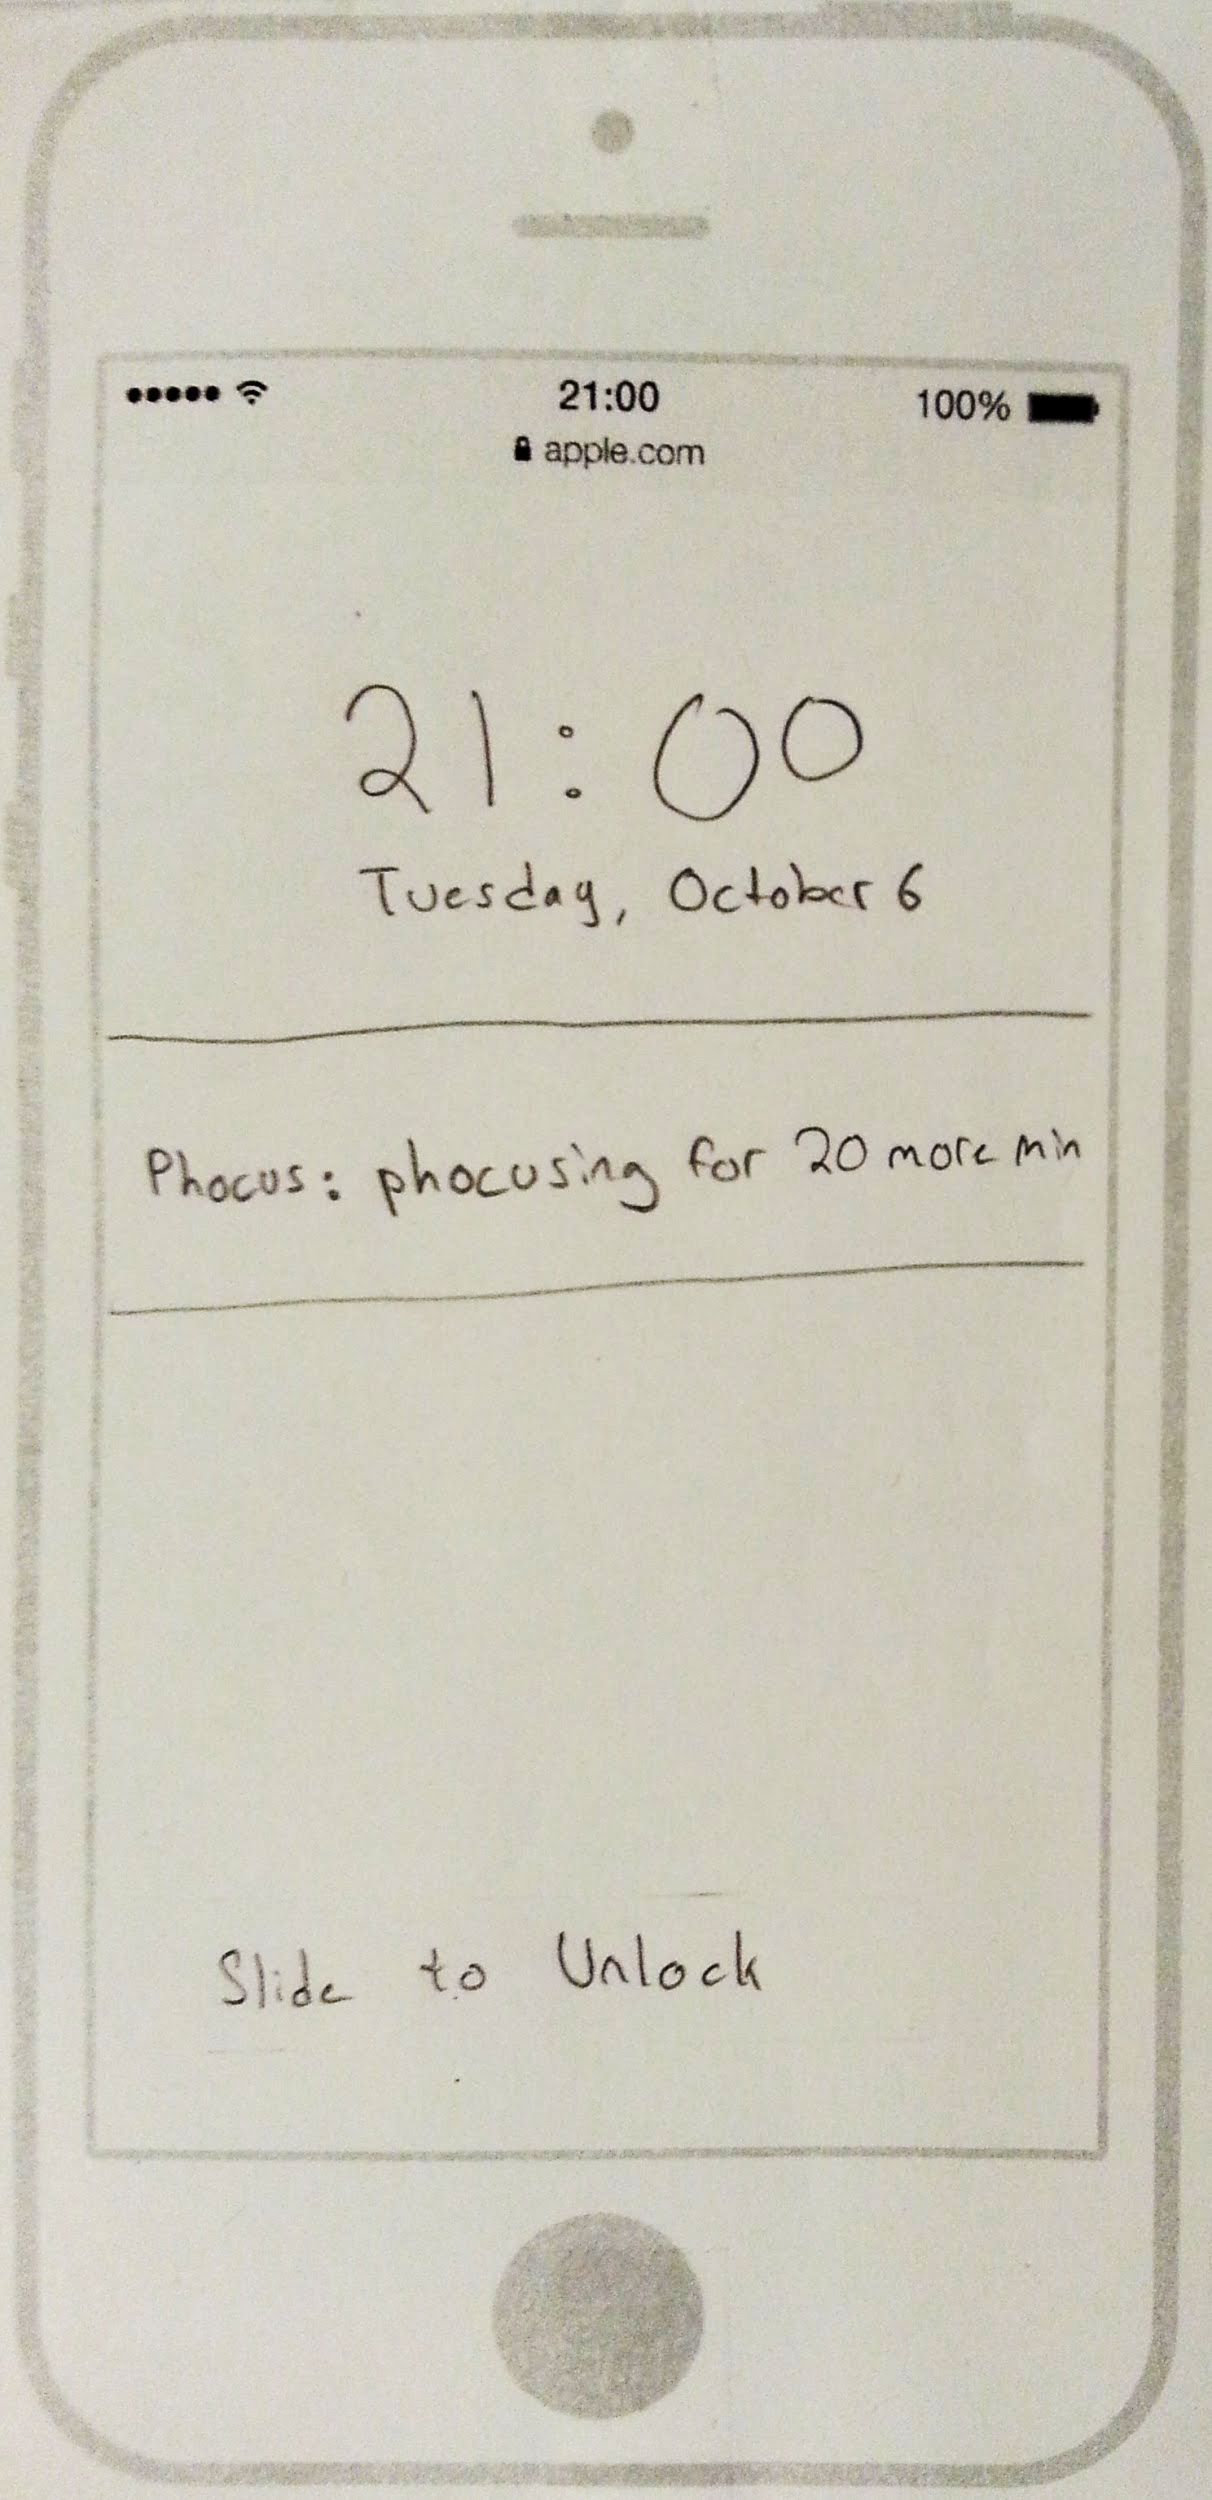 21:00 100%
apple.com
21:00
Tuesday, October 6
Phocus: phocusing for 20 more min
Slide to Unlock